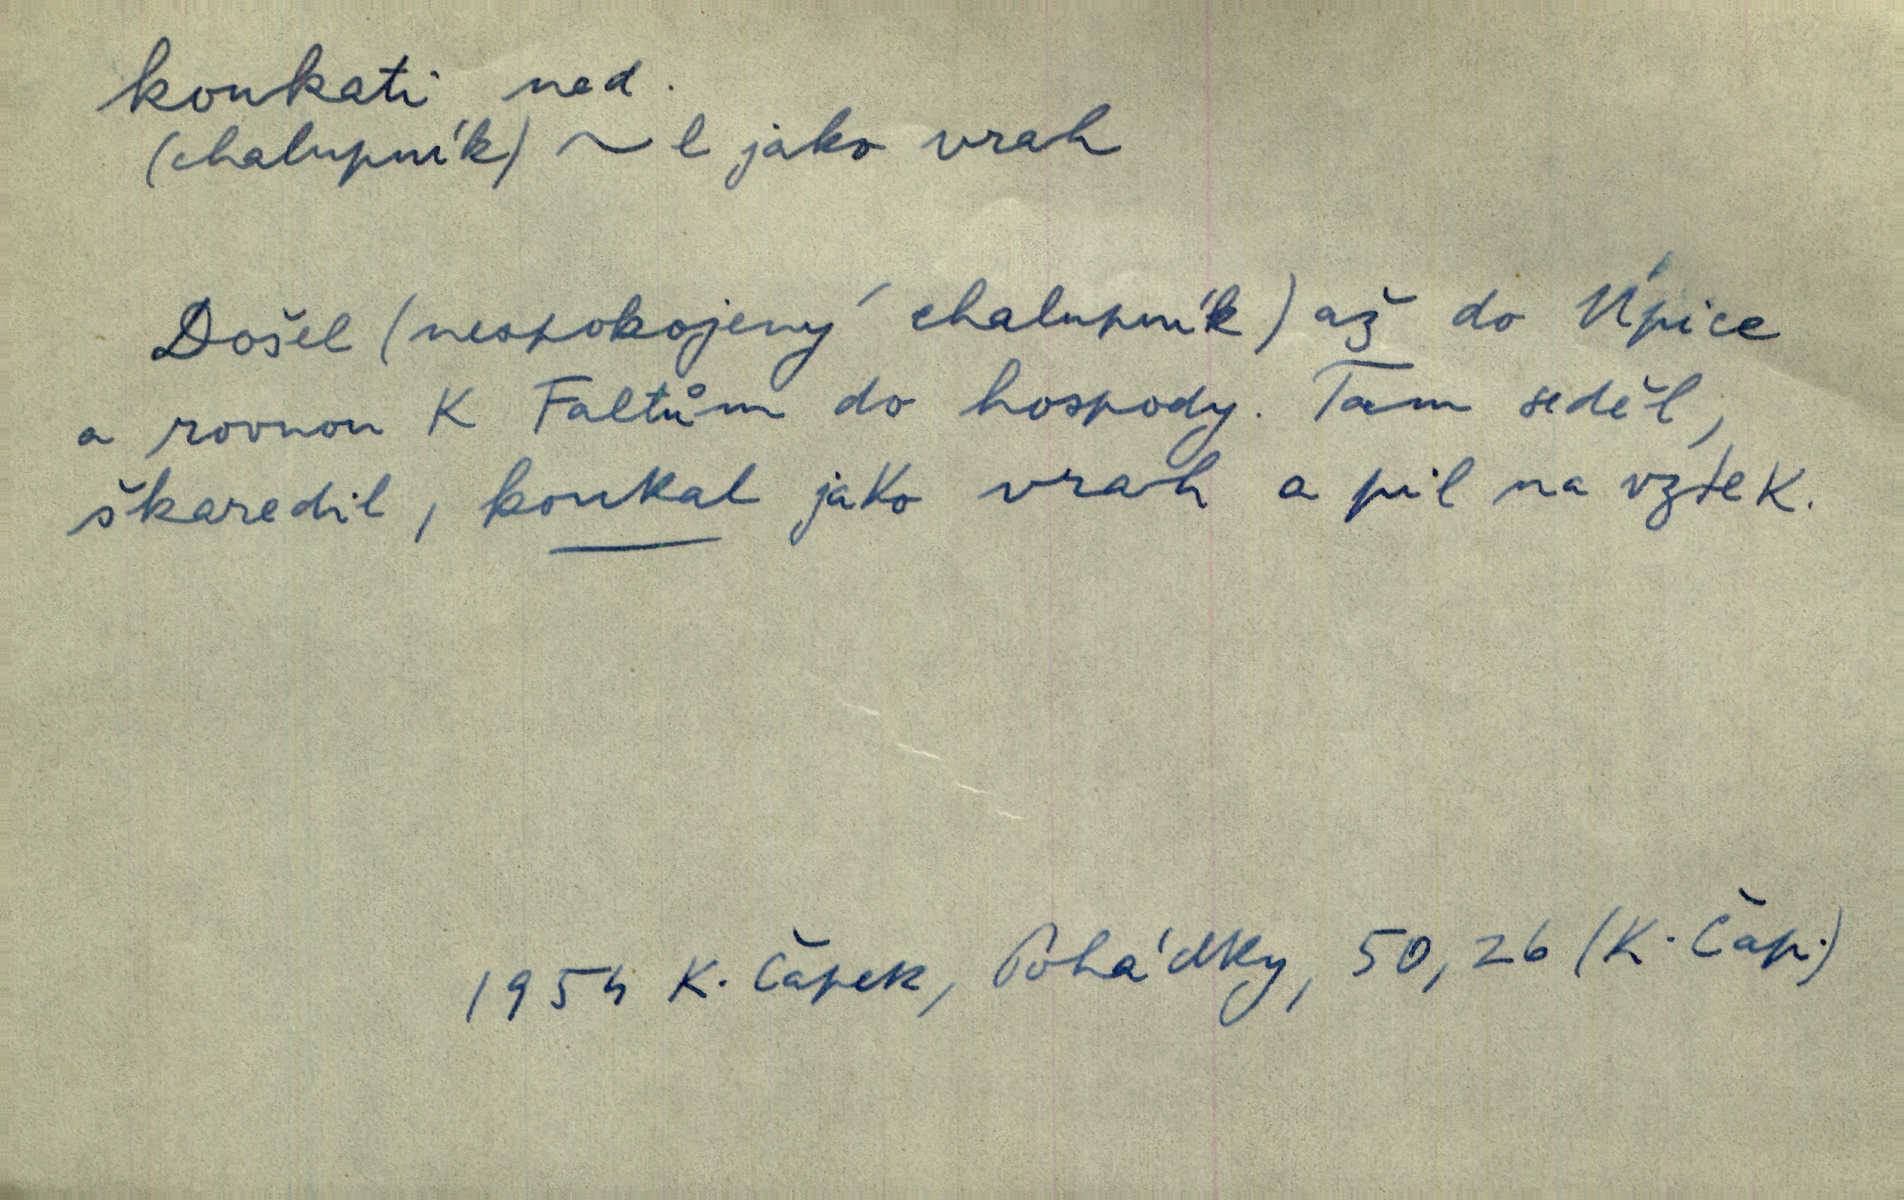 koukati ned.
(chalupník) ~ l jako vrah
Došel (nespokojený chalupník) až do Úpice
a rovnou K Faltům do hospody. Tam seděl,
škaredil, koukal jako vrah a pil na vztek.
1954 K. Čapek, Pohádky, 50, 26 (K. Čap.)